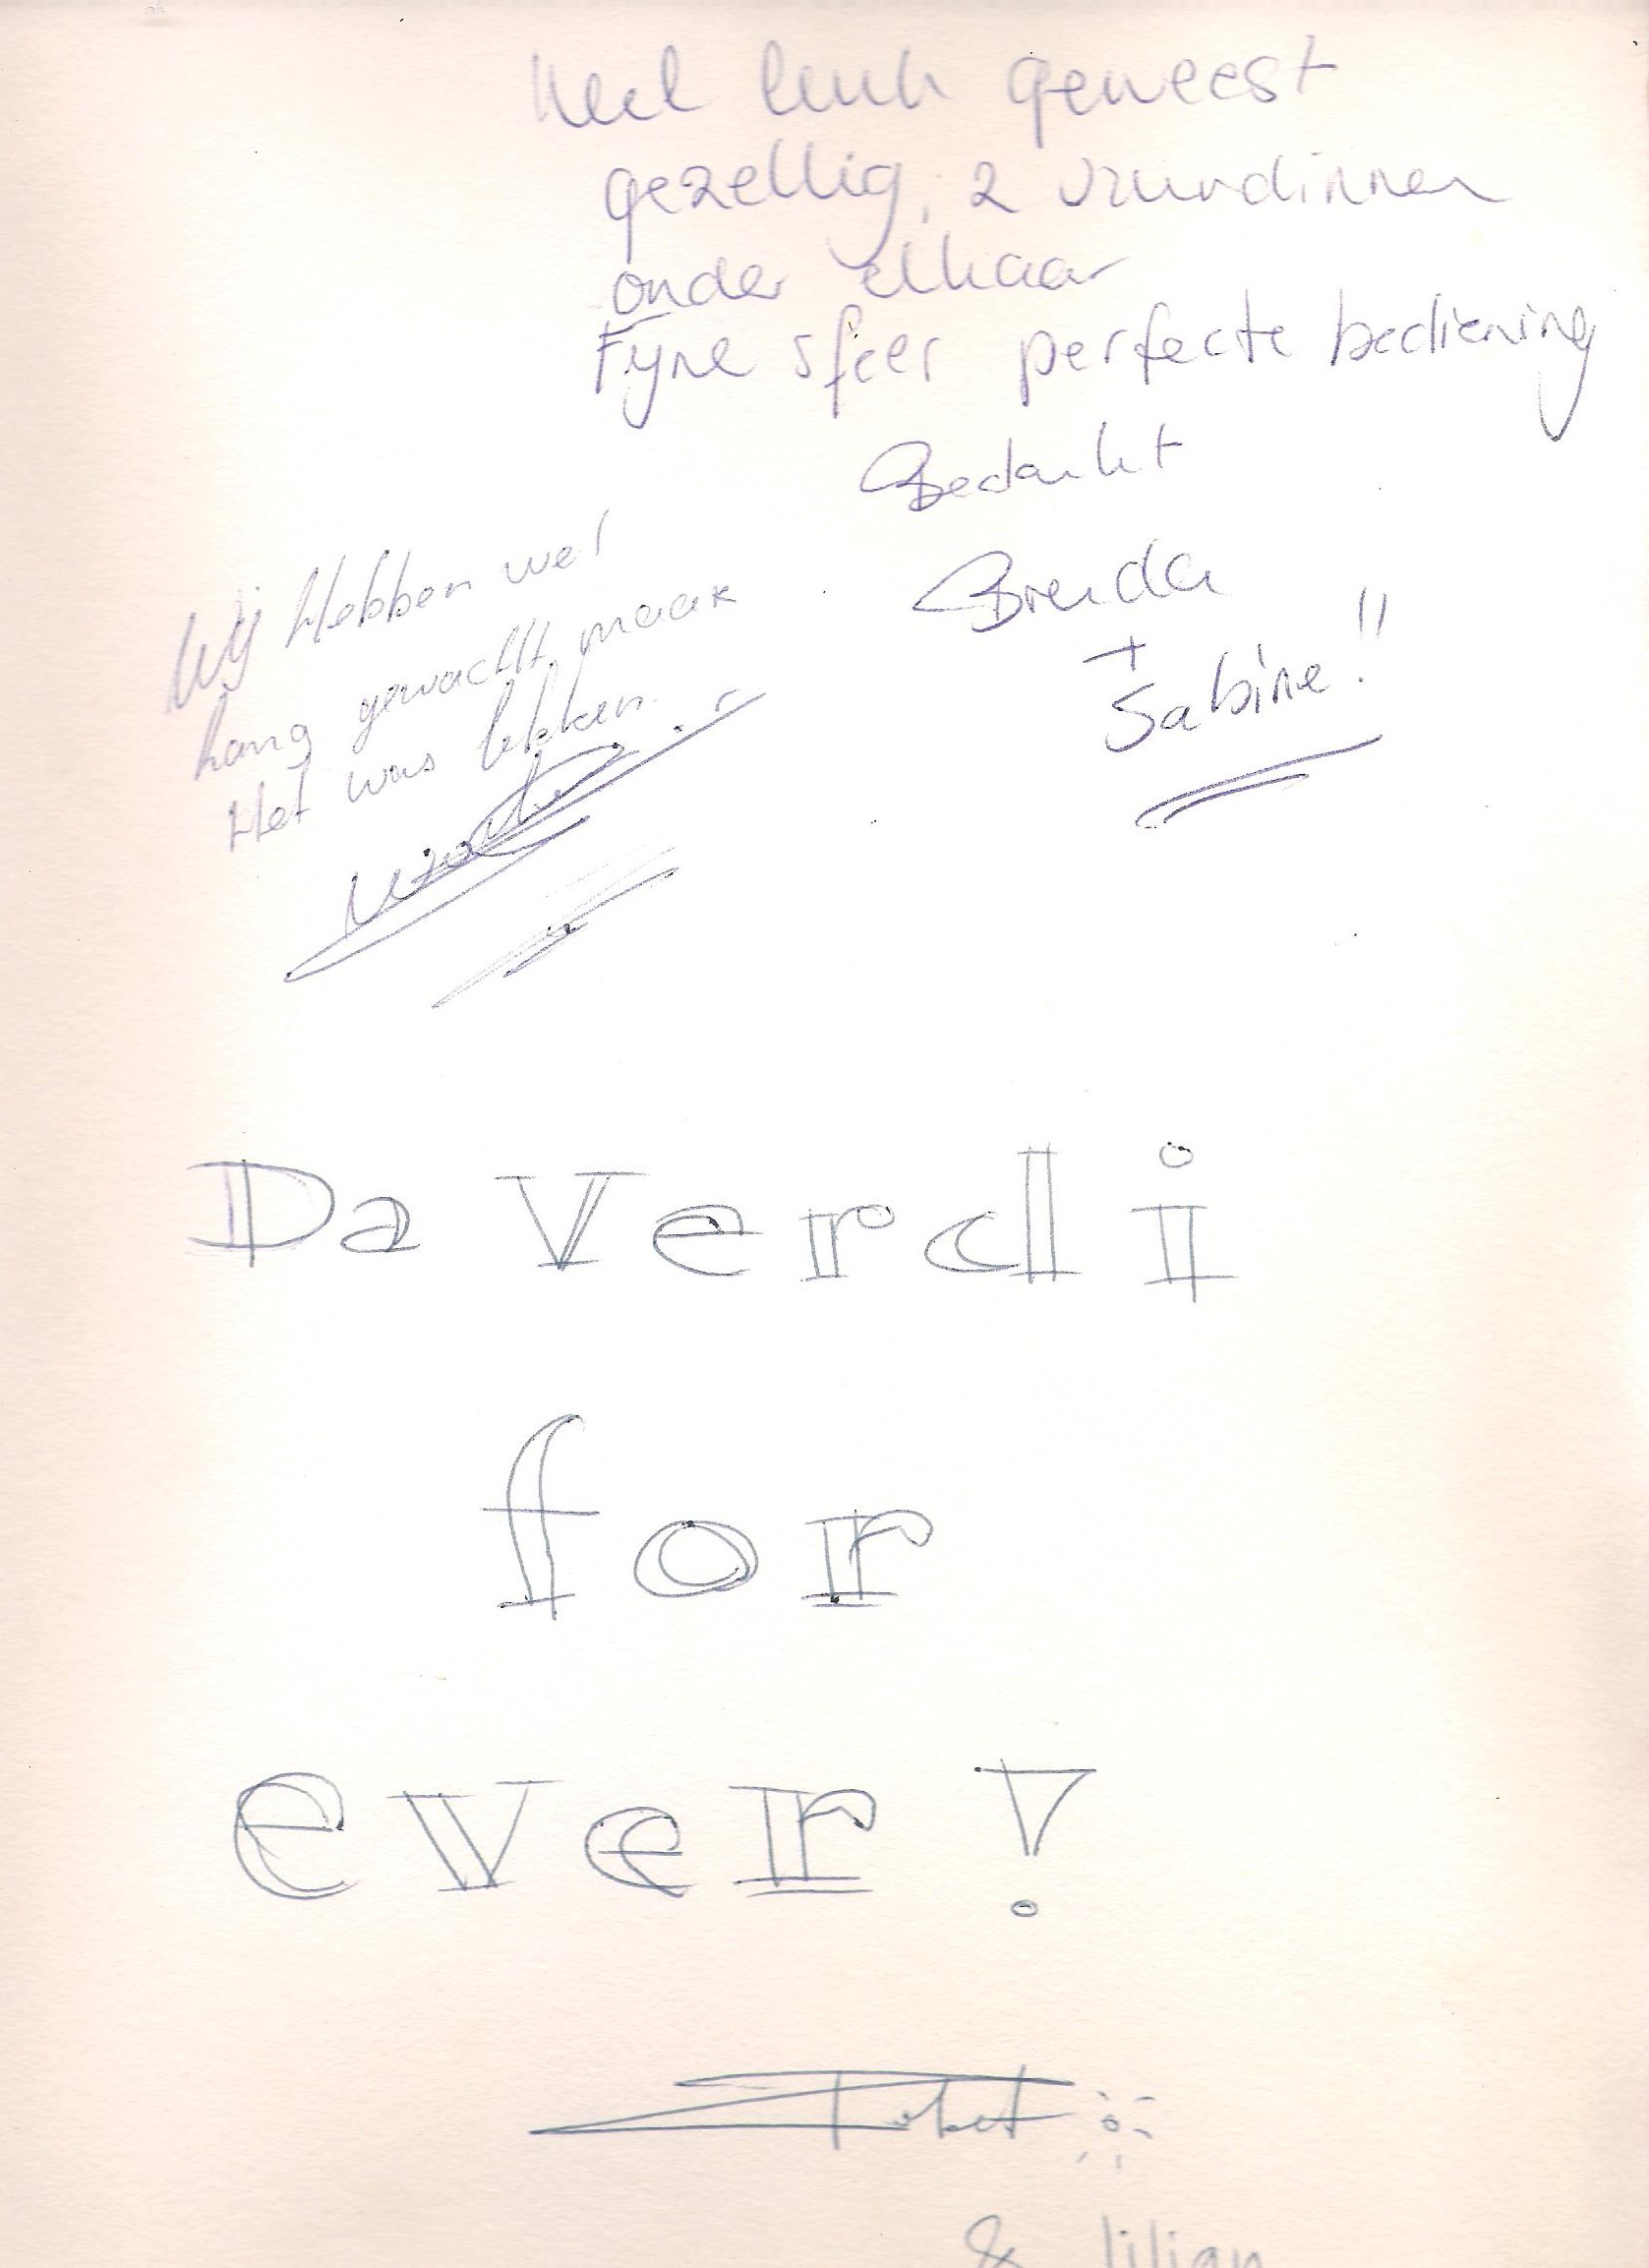 Heel leuk geweest
gezellig, 2 vriendinnen
onder elkaar
Fyne sfeer perfecte bediening
Bedankt
Brenda
+
Sabine!!
Wij Hebben wel
Lang gewacht maar
Het was lekker.
Da Verdi
for
ever!
Robert
& lilian